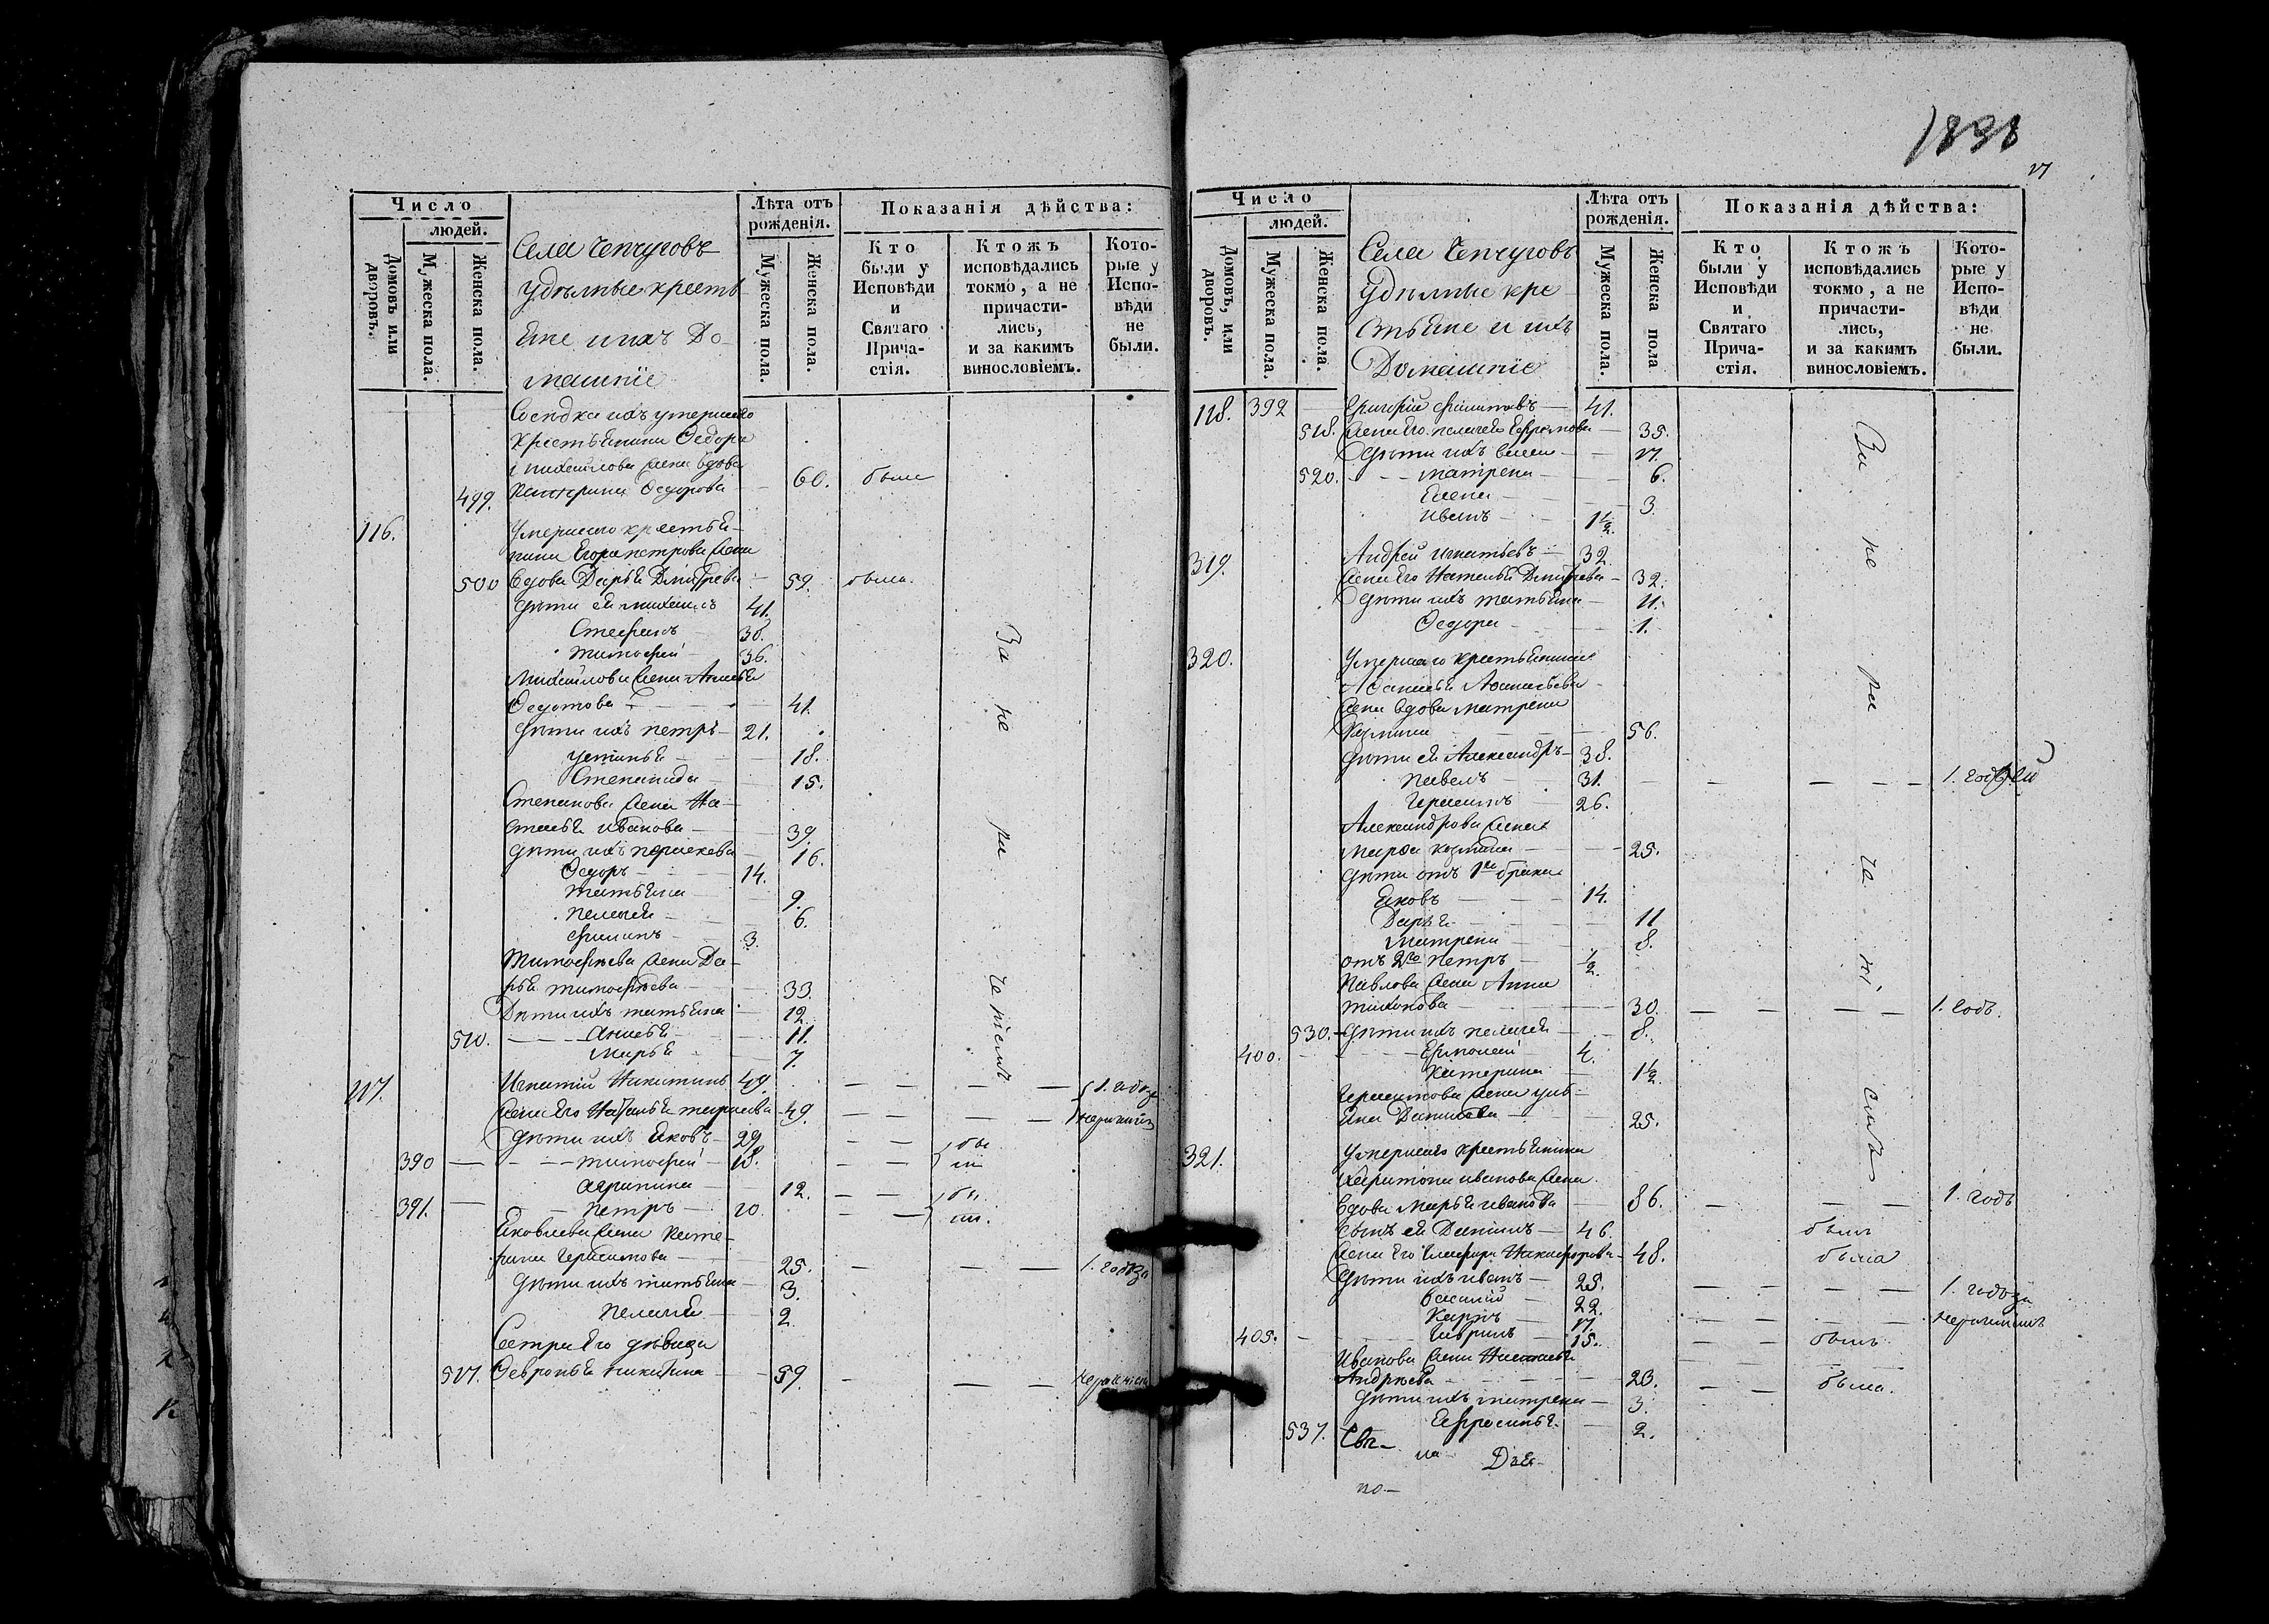 Число
людей.
Домовъ или дворовъ.
Мужеска пола.
Женска пола.
Села Чепчуговъ
удѣльные кресть
яне и ихъ До-
машніе
Лѣта отъ рожденія.
Мужеска пола.
Женска пола.
Показанія дѣйства:
Кто были у Исповѣди и Святаго Прича- стія.
Ктожъ исповѣдались токмо, а не причасти- лись, и за какимъ винословіемъ.
Кото- рые у Испо- вѣди не были.
умершаго
крестьянина Ѳедора
Михайлова жена вдова
499. Катерина Ѳедорова 60. была
116. Умершаго крестья-
нина Егора Петрова жена
500 вдова Дарья Дмитрева 59. была.
дѣти ея Михаилъ 41.
Стефанъ 38.
Тимофей 36.
Михайлова жена
Ѳедотова 41.
дѣти ихъ Петръ 21.
Устинья 18.
Степанида 15.
Степанова жена На-
стасья Иванова 39.
дѣти ихъ Парасковья 16.
Ѳедоръ 14.
Татьяна 9.
Пелагея 6.
Филипъ 3.
Тимофѣева жена Да-
рья Тимофѣева 33.
Дѣти ихъ Татьяна 12.
510. 11.
Марья 7.
За не ра че ніемъ
117. Игнатій Никитинъ 49.
жена его Наталья 49.
дѣти ихъ Яковъ 29.
390 Тимофей 18.
Агрипина 12.
391. Петръ 10.
Яковлева жена Кате-
рина Герасимова 25.
дѣти ихъ Татьяна 3.
Пелагея 2.
Сестра Его дѣвица
517. Ѳевронья Никитина 59.
1838
Число
людей.
Домовъ, или дворовъ.
Мужеска пола.
Женска пола.
Села Чепчуговъ
Удѣльные кре
стьяне и ихъ
Домашніе
Лѣта отъ рожденія.
Мужеска пола.
Женска пола
Показанія дѣйства:
Кто были у Исповѣди и Святаго Прича- стія.
Ктожъ исповѣдались токмо, а не причасти- лись, и за какимъ винословіемъ.
Кото- рые у Испо- вѣди не были.
118. 392 Григорій Филиповъ 41.
518. жена Его Пелагея Ефремова 35.
дѣти ихъ 17.
520. Матрена 6.
Елена 3.
Иванъ 1½.
319. Андрей Игнатьевъ 32.
жена Его Наталья Дмитрева 32.
дѣти ихъ Татьяна 11.
Ѳедора 1.
320. Умершаго крестьянина
Аѳанасья Аѳанасьева
жена вдова Матрена
Козмина 56.
дѣти ея Александръ 38.
Павелъ 31.
Герасимъ 26.
Александрова жена
Марѳа Козмина 25.
дѣти отъ 1го брака
Яковъ 14.
Дарья 11
Матрена 8.
отъ 2го Петръ ½.
Павлова жена Анна
Тихонова 30. 1. годъ.
530. дѣти ихъ Пелагея 8.
400. Ермолай 4.
Катерина 1½.
Герасимова жена Уль-
яна Данилова 25.
321. Умершаго крестьянина
Харитона Иванова жена
вдова Марья Иванова 86. 1. годъ
сынъ ея Данилъ 46. былъ
жена Его Глафира Никифорова 48. была
дѣти ихъ Иванъ 25.
Василій 22.
Карпъ 17.
405. Гаврилъ 15. былъ
Иванова жена Настасья
Андрѣева 23. была.
дѣти ихъ Матрена 3.
537. Ефросинья 2.
За не ра че ні